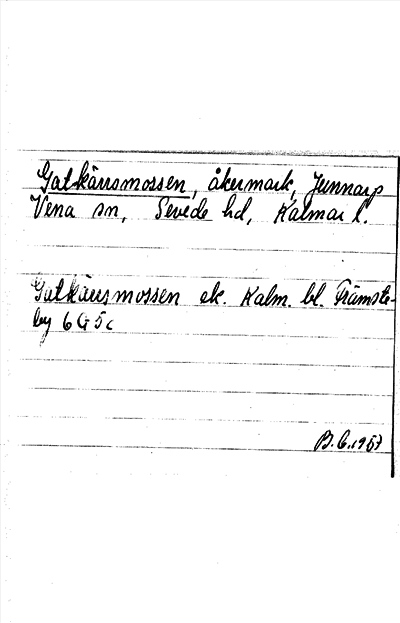 Gatkärrsmossen, åkermark, Jennarp
Vena sn, Sevede hd, Kalmar l.
Gatkärrsmossen ek. Kalm. bl. Främste-
by 6G5c
B.E. 1957